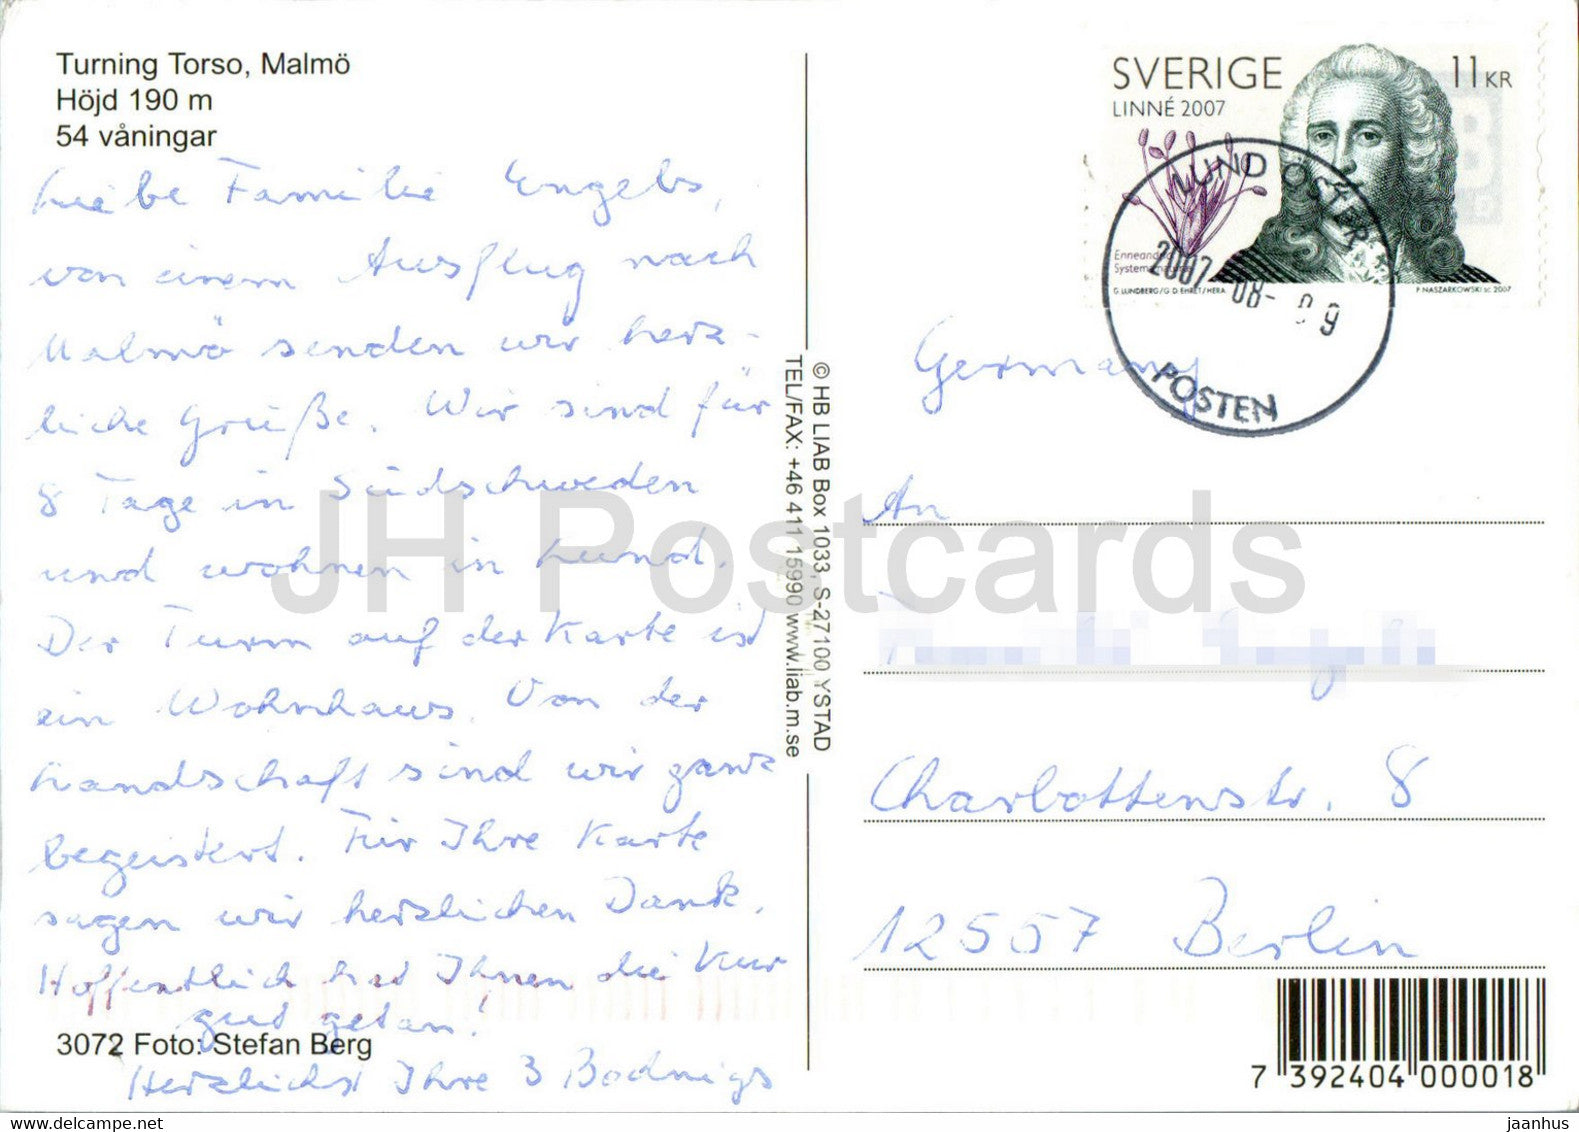 Turning Torso, Malmö
Höjd 190 m
54 våningar
Liebe Familie Engels,
von einem Ausflug nach
Malmö senden wir herz-
liche Grüße. Wir sind für
8 Tage in Südschweden
und wohnen in Lund.
Der Turm auf der Karte ist
ein Wohnhaus. Von der
Landschaft sind wir ganz
begeistert. Für Ihre Karte
sagen wir herzlichen Dank.
Hoffentlich hat Ihnen die Kur
gut getan!
3072 Foto: Stefan Berg
Herzlichst Ihre 3 Bodnigs
© HB LIAB Box 1033, S-27100 YSTAD
TEL/FAX: +46 411 15990 www.liab.m.se
SVERIGE 11 KR
LINNÉ 2007
Enneandria
Systema naturae
G. LUNDBERG/G. D. EHRET/HERA P. NASZARKOWSKI SC. 2007
LUND ÖSTER
2007-08-09
POSTEN
Germany
An
Charlottenstr. 8
12557 Berlin
7 392404 000018
JH Postcards
jaanhus
delcampe.net